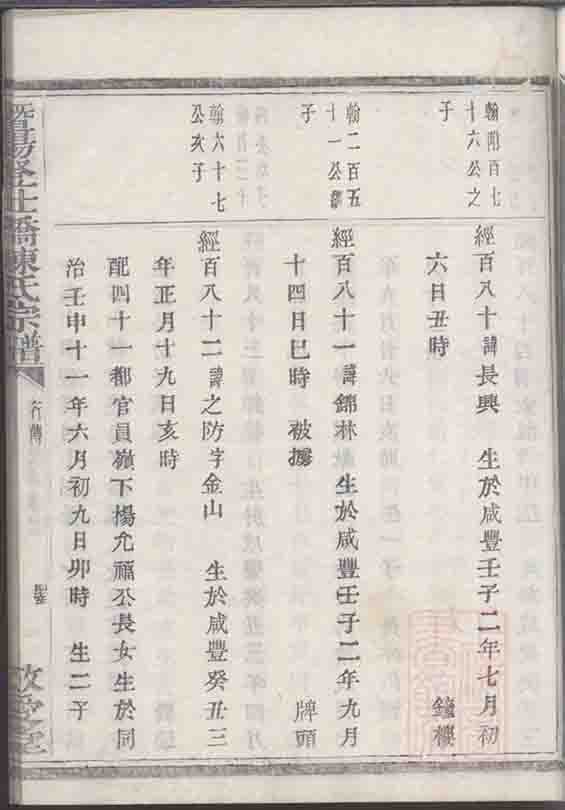 翰附百七
十六公之
子
經百八十諱長興 生於咸豐壬子二年七月初
六日丑時 鐘樓
翰二百五
十一公諱
子
經百八十一諱錦林 生於咸豐壬子二年九月
十四日巳時 被擄 牌頭
翰六十七
公次子
經百八十二諱之防字金山 生於咸豐癸丑三
年正月十九日亥時
配四十一都官員嶺下楊允福公長女生於同
治壬申十一年六月初九日卯時 生二子
暨陽 橋陳氏宗譜
行傳